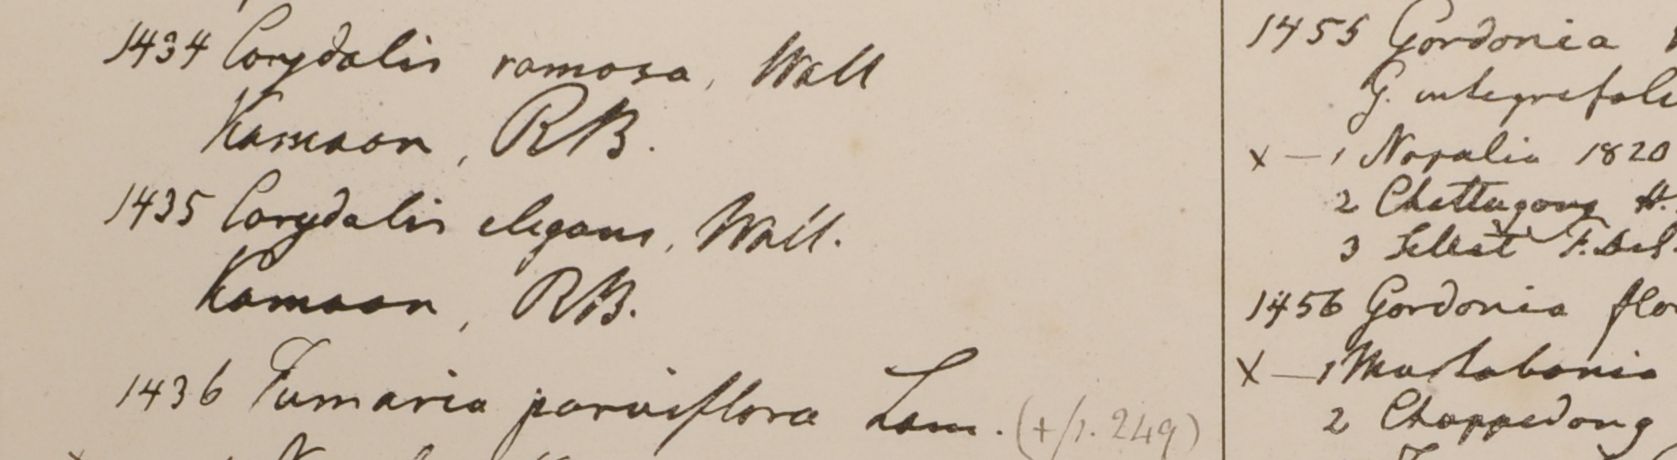 1434 Corydalis ramosa, Wall
Kamaon, RB.
1435 Corydalis elegans, Wall.
Kamaon, RB.
1436 Fumaria parviflora Lam. (+/p. 249)
1455 Gordonia
G. integrefoli
x – 1 Napalia 1820
2 Chettagong H.
3 Sillet F. de S
1456 Gordonia flo
x – 1 Martabania
2 Chappedong